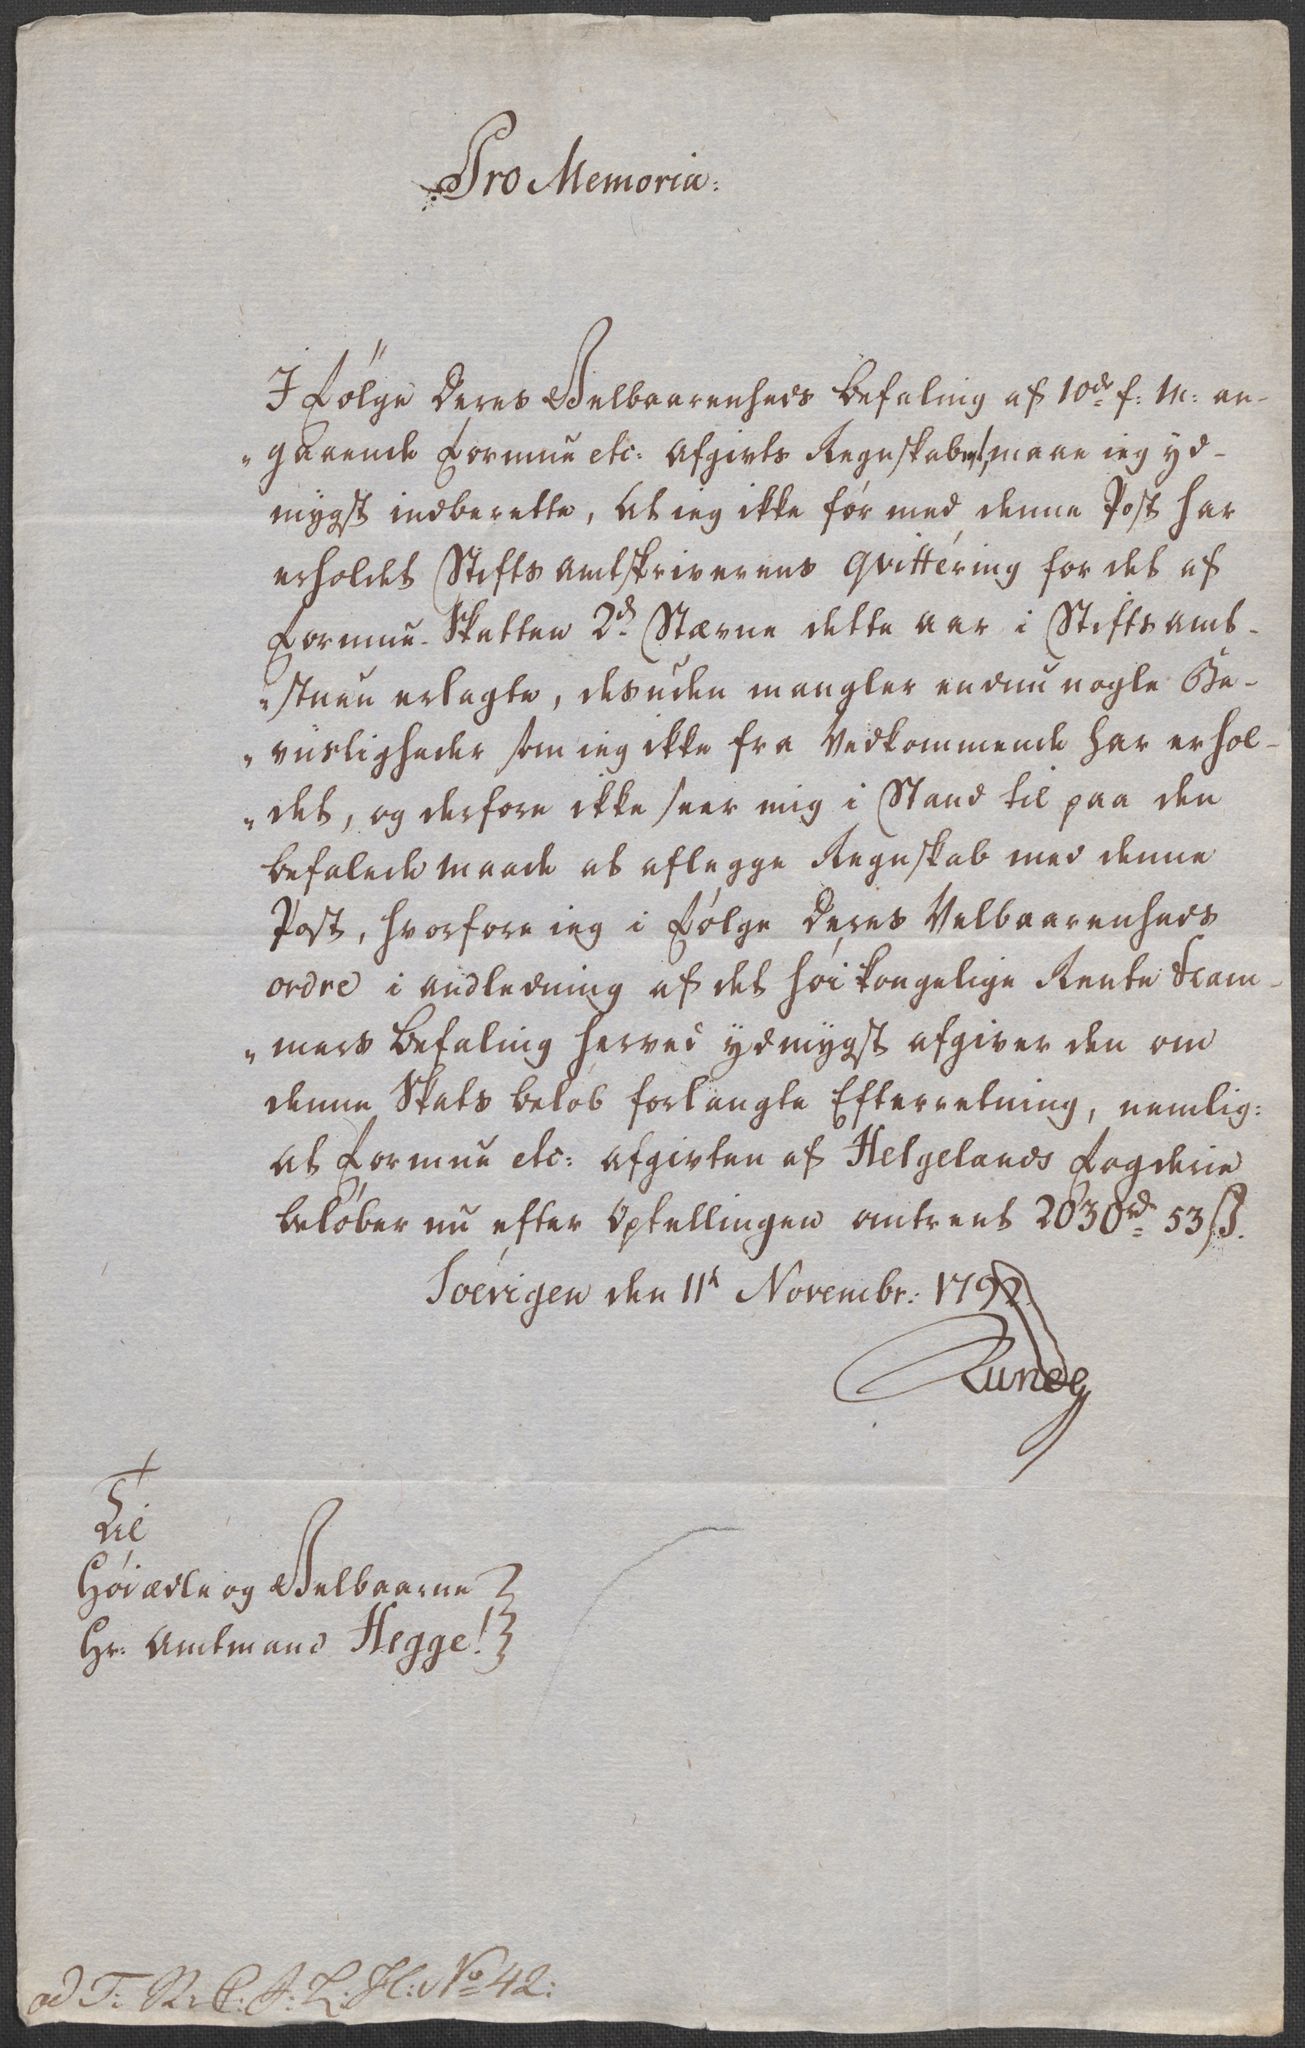 Pro Memoria:
I Følge Deres Velbaarenheds Befaling af 10de f: M: an-
"gaaende Formue etc: Afgivts Regnskabet, maae ieg yd-
mygst indberette, at ieg ikke før med denne Post har
erholdet Stiftsamtskriverens Qvittering for det af
Formue-Skatten 2d Stævne dette aar i Stiftsamt-
"stuen erlagte, desuden mangler endnu nogle Be-
"viisligheder som ieg ikke fra Vedkommende har erhol-
"det, og derfore ikke seer mig i Stand til paa den
befalede maade at aflegge Regnskab med denne
Post, hvorfore ieg i Følge Deres Velbaarenheds
ordre i andledning af det høi kongelige Rente Kam-
"mers Befaling herved ydmygst afgiver den om
denne Skats beløb forlangte Efterretning, nemlig:
at Formue etc: afgivten af Helgelands Fogderie
beløber nu efter Optellingen omtrent 2030rd 53 ß.
Soevigen den 11t Novembr: 1792.
Til
Høiædle og Velbaarne
Hr: Amtmand Hegge!
ad T: R: C: J: L: H: No 42: